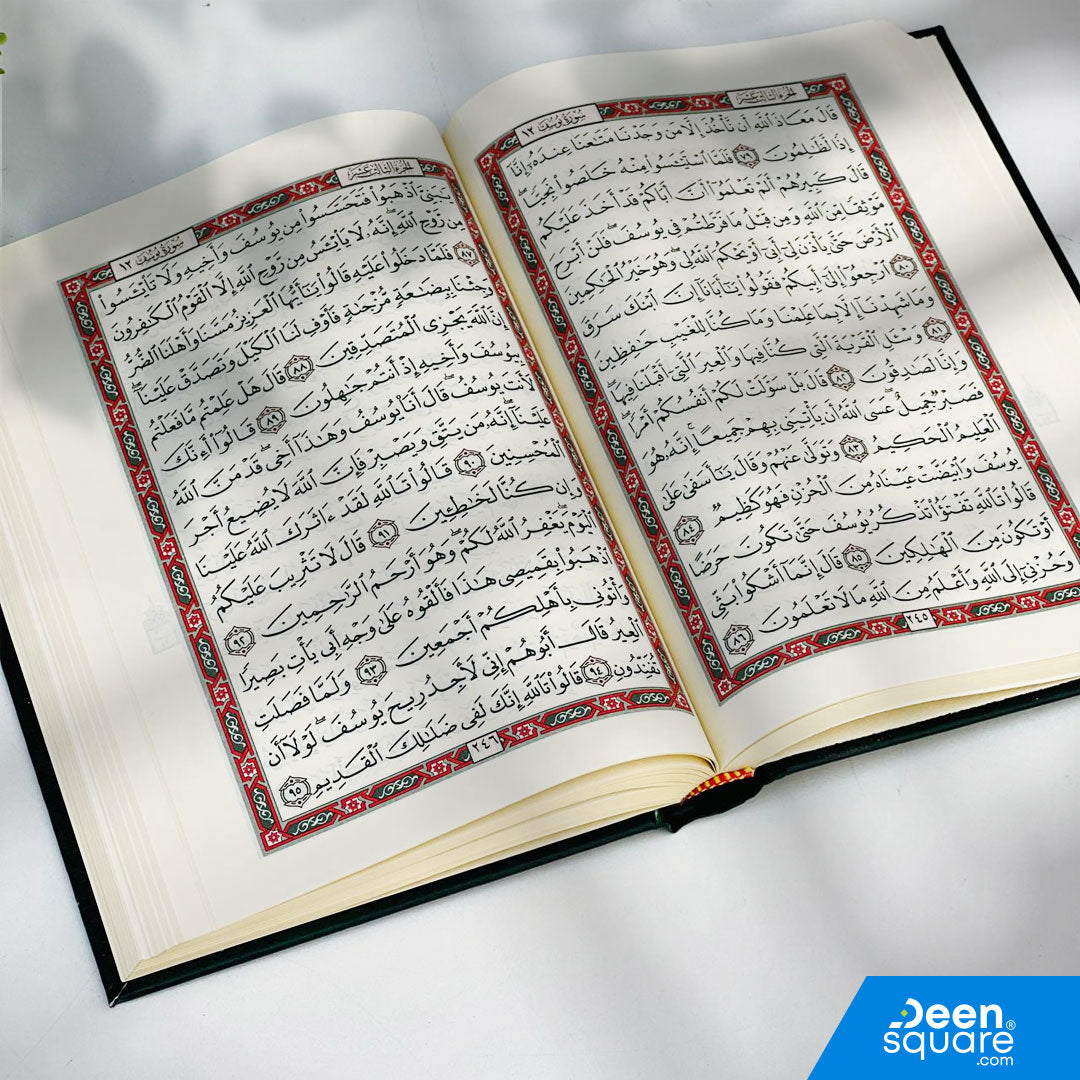 الجزء الثالث عشر
سورة يوسف ١٢
قَالَ مَعَاذَ ٱللَّهِ أَن نَّأْخُذَ إِلَّا مَن وَجَدْنَا مَتَٰعَنَا عِندَهُۥٓ إِنَّآ
إِذًا لَّظَٰلِمُونَ ٧٩ فَلَمَّا ٱسْتَيْـَٔسُوا۟ مِنْهُ خَلَصُوا۟ نَجِيًّا ۖ
قَالَ كَبِيرُهُمْ أَلَمْ تَعْلَمُوٓا۟ أَنَّ أَبَاكُمْ قَدْ أَخَذَ عَلَيْكُم
مَّوْثِقًا مِّنَ ٱللَّهِ وَمِن قَبْلُ مَا فَرَّطتُمْ فِى يُوسُفَ ۖ فَلَنْ أَبْرَحَ
ٱلْأَرْضَ حَتَّىٰ يَأْذَنَ لِىٓ أَبِىٓ أَوْ يَحْكُمَ ٱللَّهُ لِى ۖ وَهُوَ خَيْرُ ٱلْحَٰكِمِينَ
٨٠ ٱرْجِعُوٓا۟ إِلَىٰٓ أَبِيكُمْ فَقُولُوا۟ يَٰٓأَبَانَآ إِنَّ ٱبْنَكَ سَرَقَ
وَمَا شَهِدْنَآ إِلَّا بِمَا عَلِمْنَا وَمَا كُنَّا لِلْغَيْبِ حَٰفِظِينَ
٨١ وَسْـَٔلِ ٱلْقَرْيَةَ ٱلَّتِى كُنَّا فِيهَا وَٱلْعِيرَ ٱلَّتِىٓ أَقْبَلْنَا فِيهَا ۖ
وَإِنَّا لَصَٰدِقُونَ ٨٢ قَالَ بَلْ سَوَّلَتْ لَكُمْ أَنفُسُكُمْ أَمْرًا ۖ
فَصَبْرٌ جَمِيلٌ ۖ عَسَى ٱللَّهُ أَن يَأْتِيَنِى بِهِمْ جَمِيعًا ۚ إِنَّهُۥ هُوَ
ٱلْعَلِيمُ ٱلْحَكِيمُ ٨٣ وَتَوَلَّىٰ عَنْهُمْ وَقَالَ يَٰٓأَسَفَىٰ عَلَىٰ
يُوسُفَ وَٱبْيَضَّتْ عَيْنَاهُ مِنَ ٱلْحُزْنِ فَهُوَ كَظِيمٌ ٨٤
قَالُوا۟ تَٱللَّهِ تَفْتَؤُا۟ تَذْكُرُ يُوسُفَ حَتَّىٰ تَكُونَ حَرَضًا
أَوْ تَكُونَ مِنَ ٱلْهَٰلِكِينَ ٨٥ قَالَ إِنَّمَآ أَشْكُوا۟ بَثِّى
وَحُزْنِىٓ إِلَى ٱللَّهِ وَأَعْلَمُ مِنَ ٱللَّهِ مَا لَا تَعْلَمُونَ ٨٦
٢٤٥
الجزء الثالث عشر
سورة يوسف ١٢
يَٰبَنِىَّ ٱذْهَبُوا۟ فَتَحَسَّسُوا۟ مِن يُوسُفَ وَأَخِيهِ وَلَا تَا۟يْـَٔسُوا۟
مِن رَّوْحِ ٱللَّهِ ۖ إِنَّهُۥ لَا يَا۟يْـَٔسُ مِن رَّوْحِ ٱللَّهِ إِلَّا ٱلْقَوْمُ ٱلْكَٰفِرُونَ
٨٧ فَلَمَّا دَخَلُوا۟ عَلَيْهِ قَالُوا۟ يَٰٓأَيُّهَا ٱلْعَزِيزُ مَسَّنَا وَأَهْلَنَا ٱلضُّرُّ
وَجِئْنَا بِبِضَٰعَةٍ مُّزْجَىٰةٍ فَأَوْفِ لَنَا ٱلْكَيْلَ وَتَصَدَّقْ عَلَيْنَآ ۖ
إِنَّ ٱللَّهَ يَجْزِى ٱلْمُتَصَدِّقِينَ ٨٨ قَالَ هَلْ عَلِمْتُم مَّا فَعَلْتُم
بِيُوسُفَ وَأَخِيهِ إِذْ أَنتُمْ جَٰهِلُونَ ٨٩ قَالُوٓا۟ أَءِنَّكَ
لَأَنتَ يُوسُفُ ۖ قَالَ أَنَا۠ يُوسُفُ وَهَٰذَآ أَخِى ۖ قَدْ مَنَّ ٱللَّهُ
عَلَيْنَآ ۖ إِنَّهُۥ مَن يَتَّقِ وَيَصْبِرْ فَإِنَّ ٱللَّهَ لَا يُضِيعُ أَجْرَ
ٱلْمُحْسِنِينَ ٩٠ قَالُوا۟ تَٱللَّهِ لَقَدْ ءَاثَرَكَ ٱللَّهُ عَلَيْنَا
وَإِن كُنَّا لَخَٰطِـِٔينَ ٩١ قَالَ لَا تَثْرِيبَ عَلَيْكُمُ
ٱلْيَوْمَ ۖ يَغْفِرُ ٱللَّهُ لَكُمْ ۖ وَهُوَ أَرْحَمُ ٱلرَّٰحِمِينَ ٩٢
ٱذْهَبُوا۟ بِقَمِيصِى هَٰذَا فَأَلْقُوهُ عَلَىٰ وَجْهِ أَبِى يَأْتِ بَصِيرًا
وَأْتُونِى بِأَهْلِكُمْ أَجْمَعِينَ ٩٣ وَلَمَّا فَصَلَتِ
ٱلْعِيرُ قَالَ أَبُوهُمْ إِنِّى لَأَجِدُ رِيحَ يُوسُفَ ۖ لَوْلَآ أَن
تُفَنِّدُونِ ٩٤ قَالُوا۟ تَٱللَّهِ إِنَّكَ لَفِى ضَلَٰلِكَ ٱلْقَدِيمِ ٩٥
٢٤٦
Deen
square®
.com